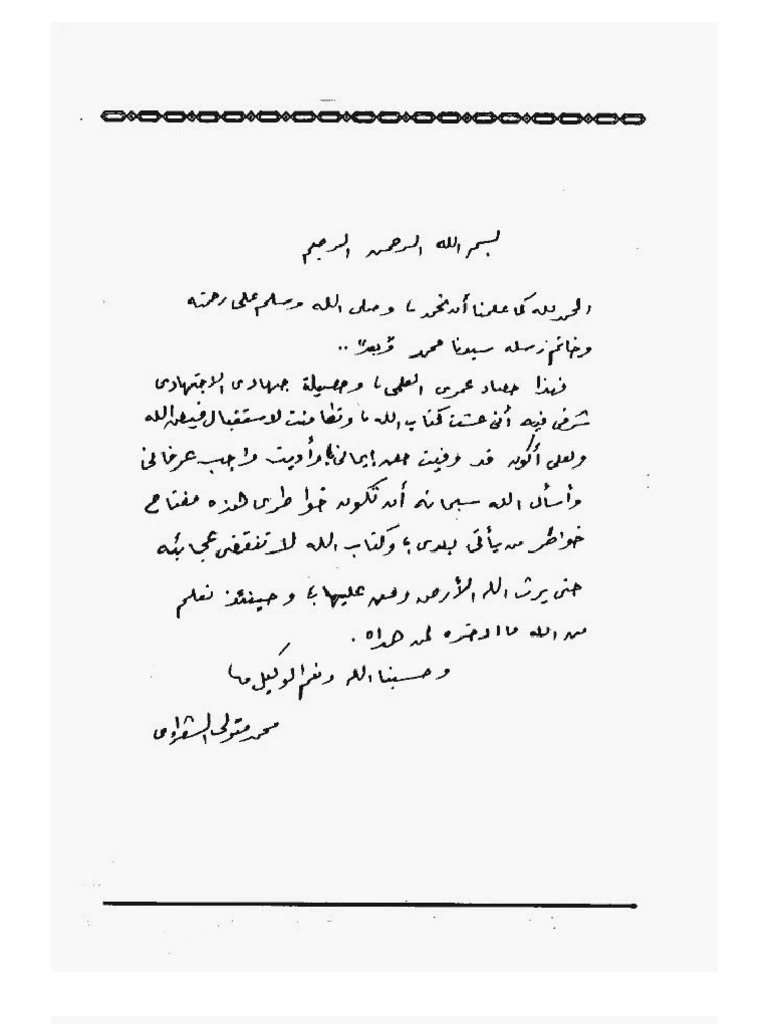 بسم الله الرحمن الرحيم
الحمد لله كما علمنا أن نحمد، وصلى الله وسلم على رحمته
وخاتم رسله سيدنا محمد وبعد..
فهذا حصاد عمرى العلمى، وحصيلة جهادى الاجتهادى
شرفى فيه أنى عشت كتاب الله، وتطامنت لاستقبال فيض الله
ولعلى أكون قد وفيت حق إيمانى، وأديت واجب عرفانى
وأسأل الله سبحانه أن تكون خواطرى هذه مفتاح
خواطر من يأتى بعدى، وكتاب الله لا تنقضى عجائبه
حتى يرث الله الأرض ومن عليها، وحينئذ نعلم
من الله ما ادخره لمن هداه.
وحسبنا الله ونعم الوكيل
محمد متولى الشعراوى